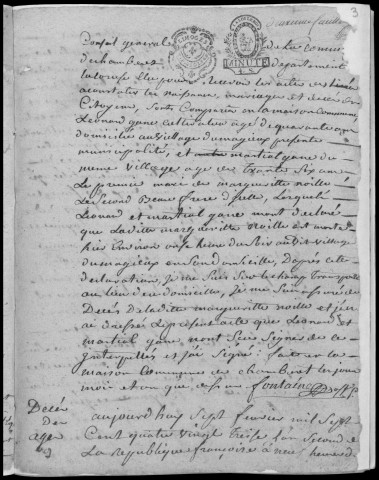 3
Conseil general de la commune
de chamberet departement
de la correze Elu pour recevoir les actes destinés
a constater les naissance, mariages et deces des
Citoyens, sont comparus en la maison commune
Leonard gane cultivateur agé de quarante ans
domicilié au village du magieux presente
municipalité, et martial gane du
meme village agé de trante six ans
Le premier mary de margueritte noille
Le second Beau frere d'jcelle, Lesquels
Leonard et martial gane mont declaré
que Laditte marguerite noille est morte
hier Environ onze heure du soir audit village
du magieux en son domicille, D'apres cette
declaration, je me suis sur le champ transporté
au lieu du domicille, je me suis assuré du
Deces de laditte marguerite noille et j'en
ai dressé Le present acte que Leonard et
martial gane, nont seus signer de ce
jnterpellés et j'ai signé : fait en la
maison Commune de chamberet les jour
mois et an que dessus fontaine
Decès aujourdhuy sept fevrier mil sept
Cent quatre vingt treize l'an second de
La republique françoise à neuf heures du
MINUTE